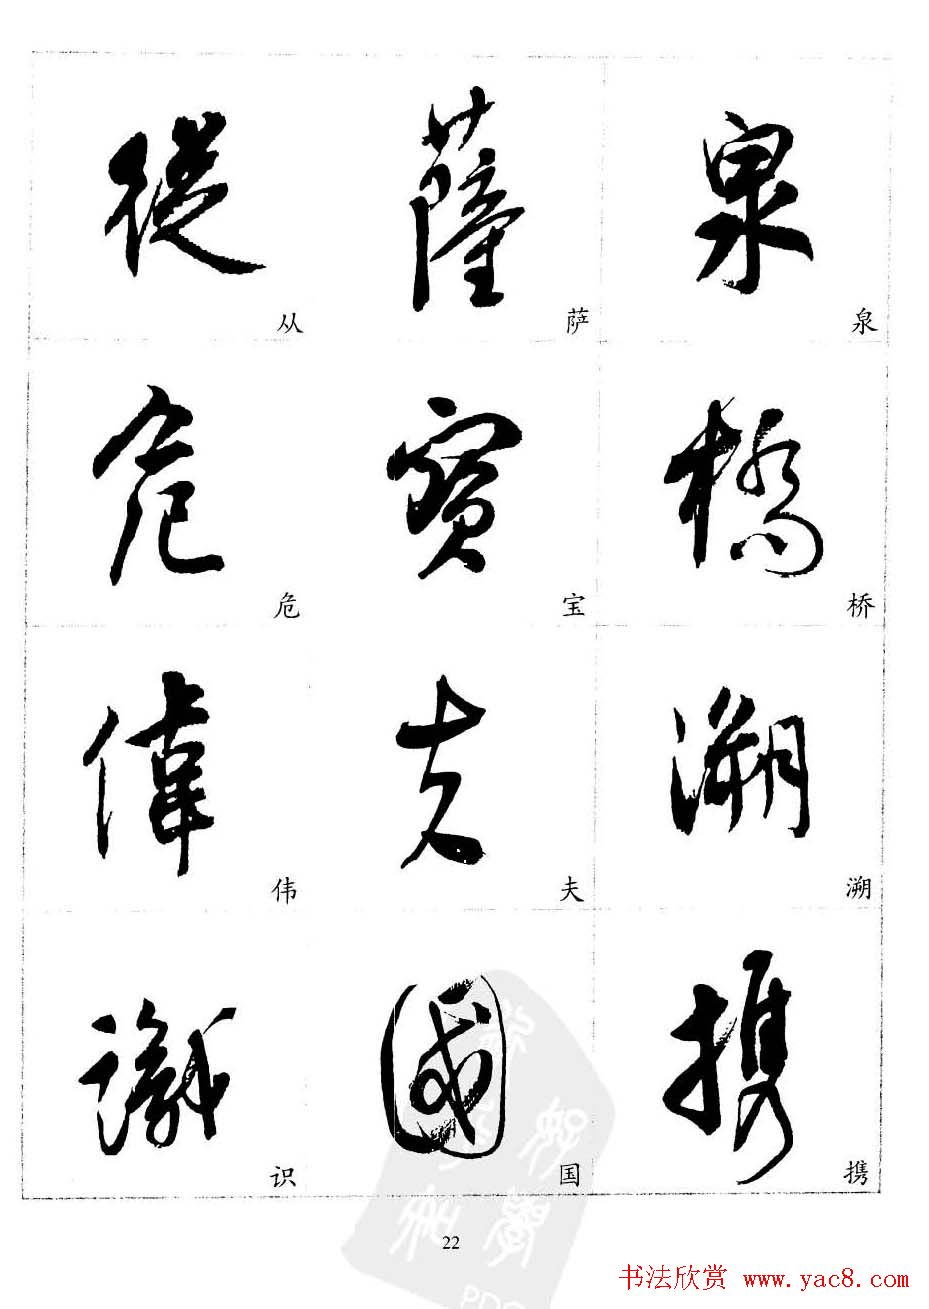 從 薩 泉
从 萨 泉
危 寳 橋
危 宝 桥
偉 夫 溯
伟 夫 溯
識 國 携
识 国 携
22
书法欣赏 www.yac8.com